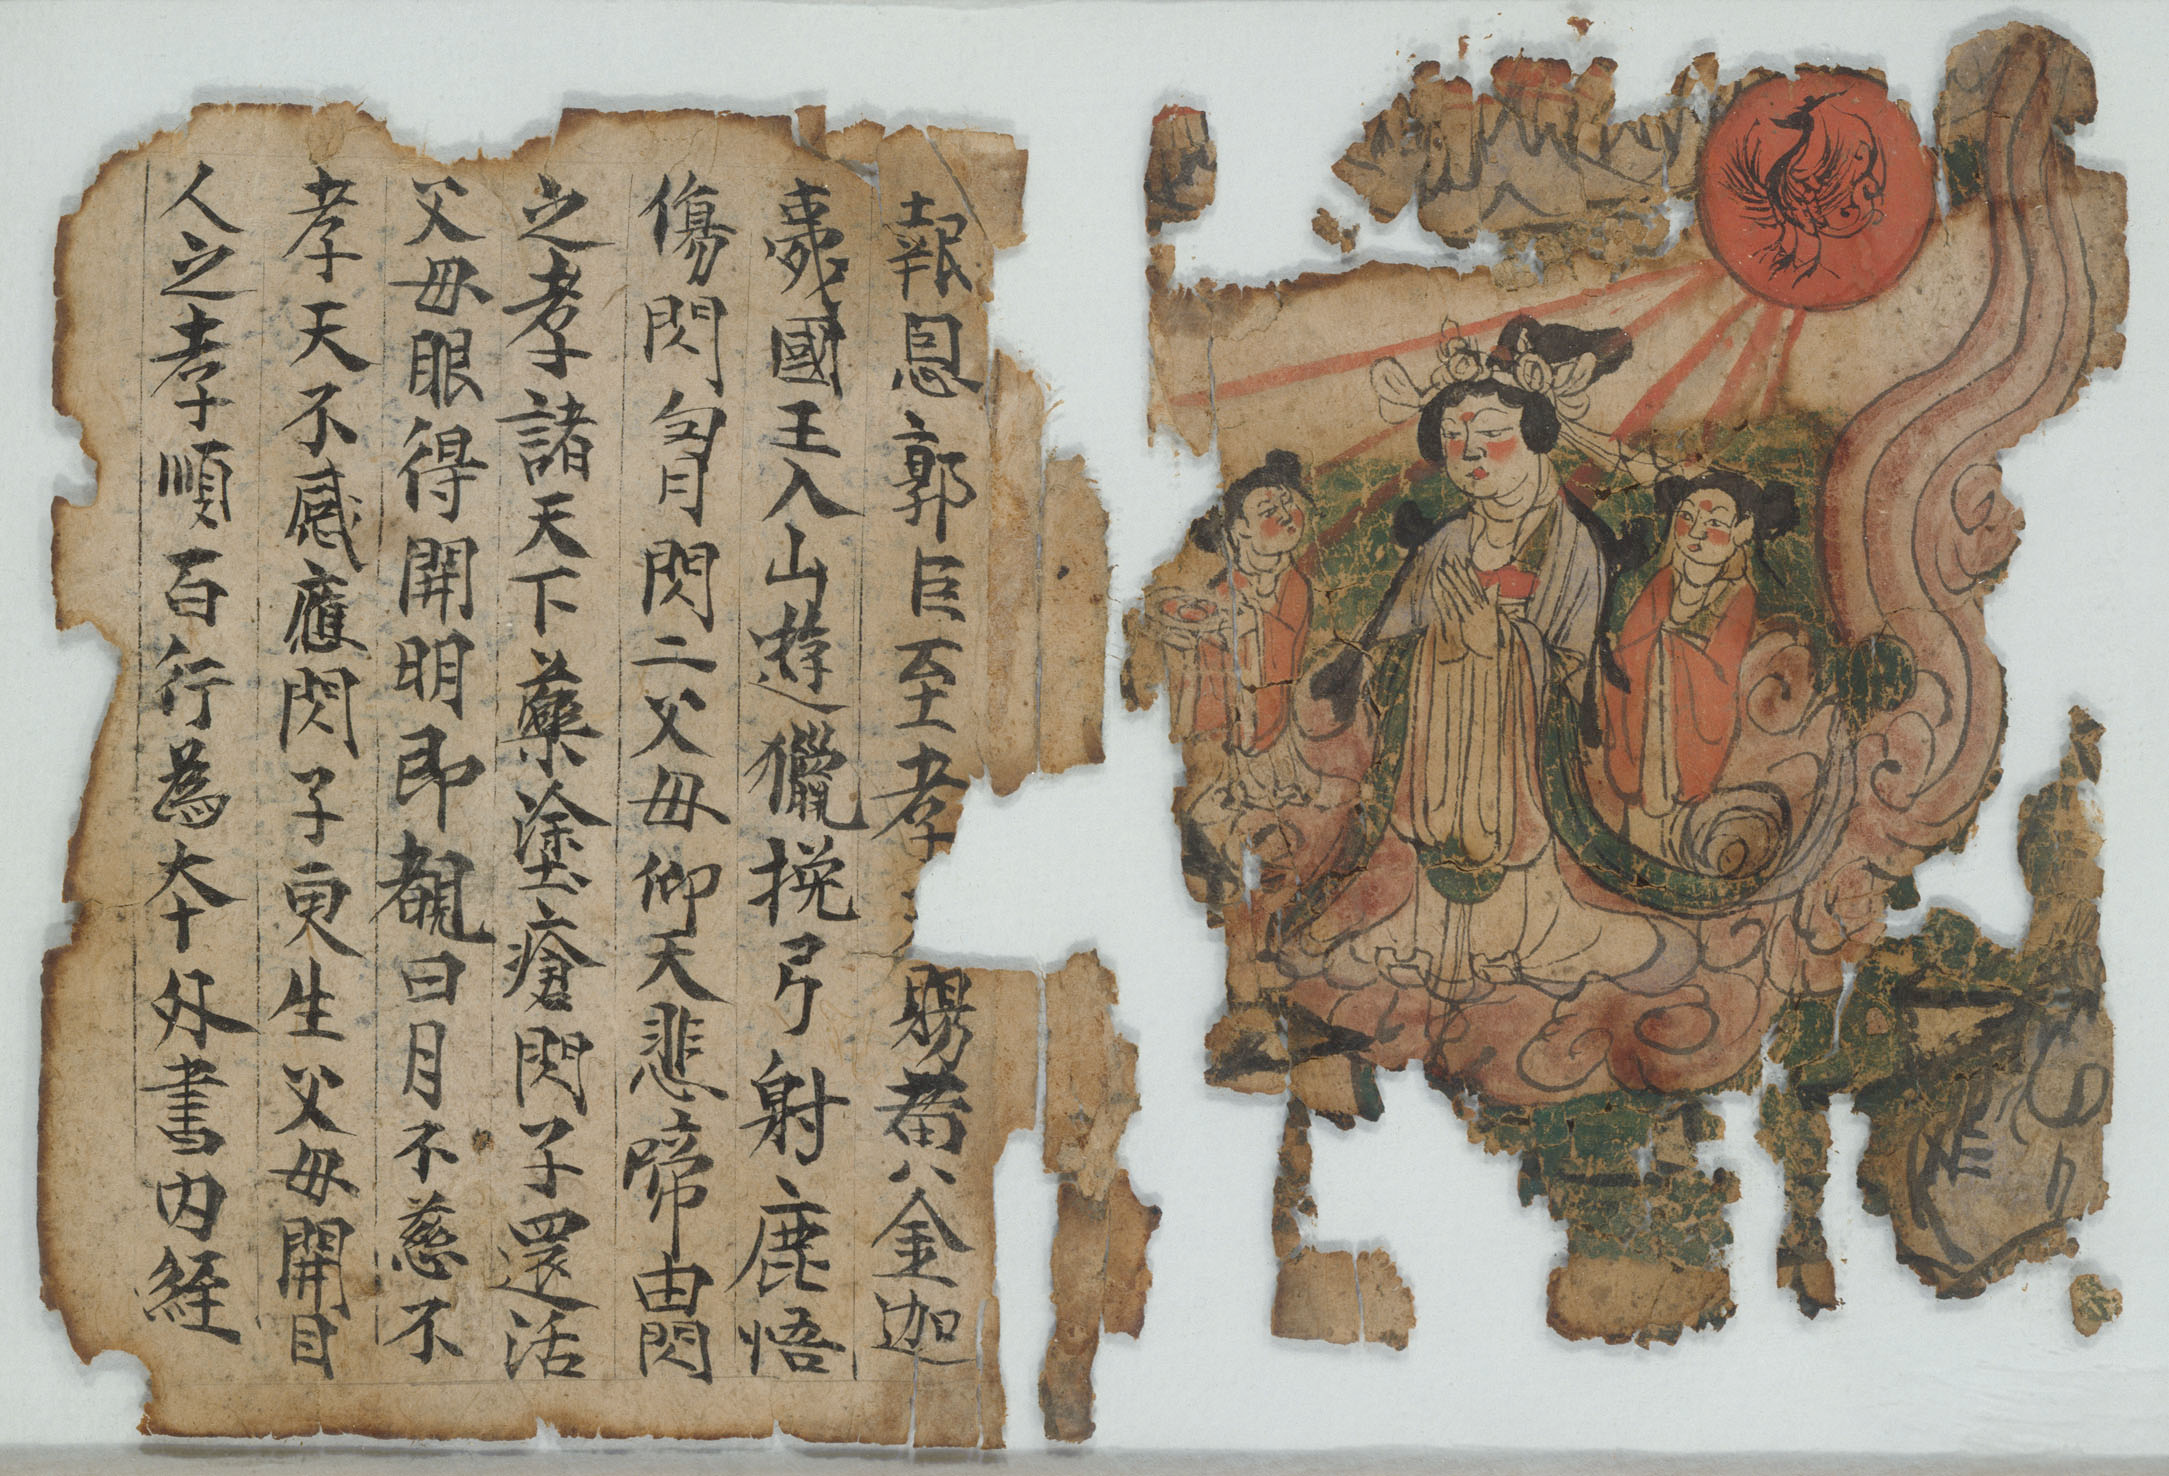 報恩郭臣至孝天賜黄金迦
夷國王入山遊獵挽弓射鹿悟
傷閃匈閃二父母仰天悲啼由閃
之孝諸天下藥塗瘡閃子還活
父母眼得開明即覩日月不慈不
孝天不感應閃子更生父母開目
人之孝順百行為本外書內經